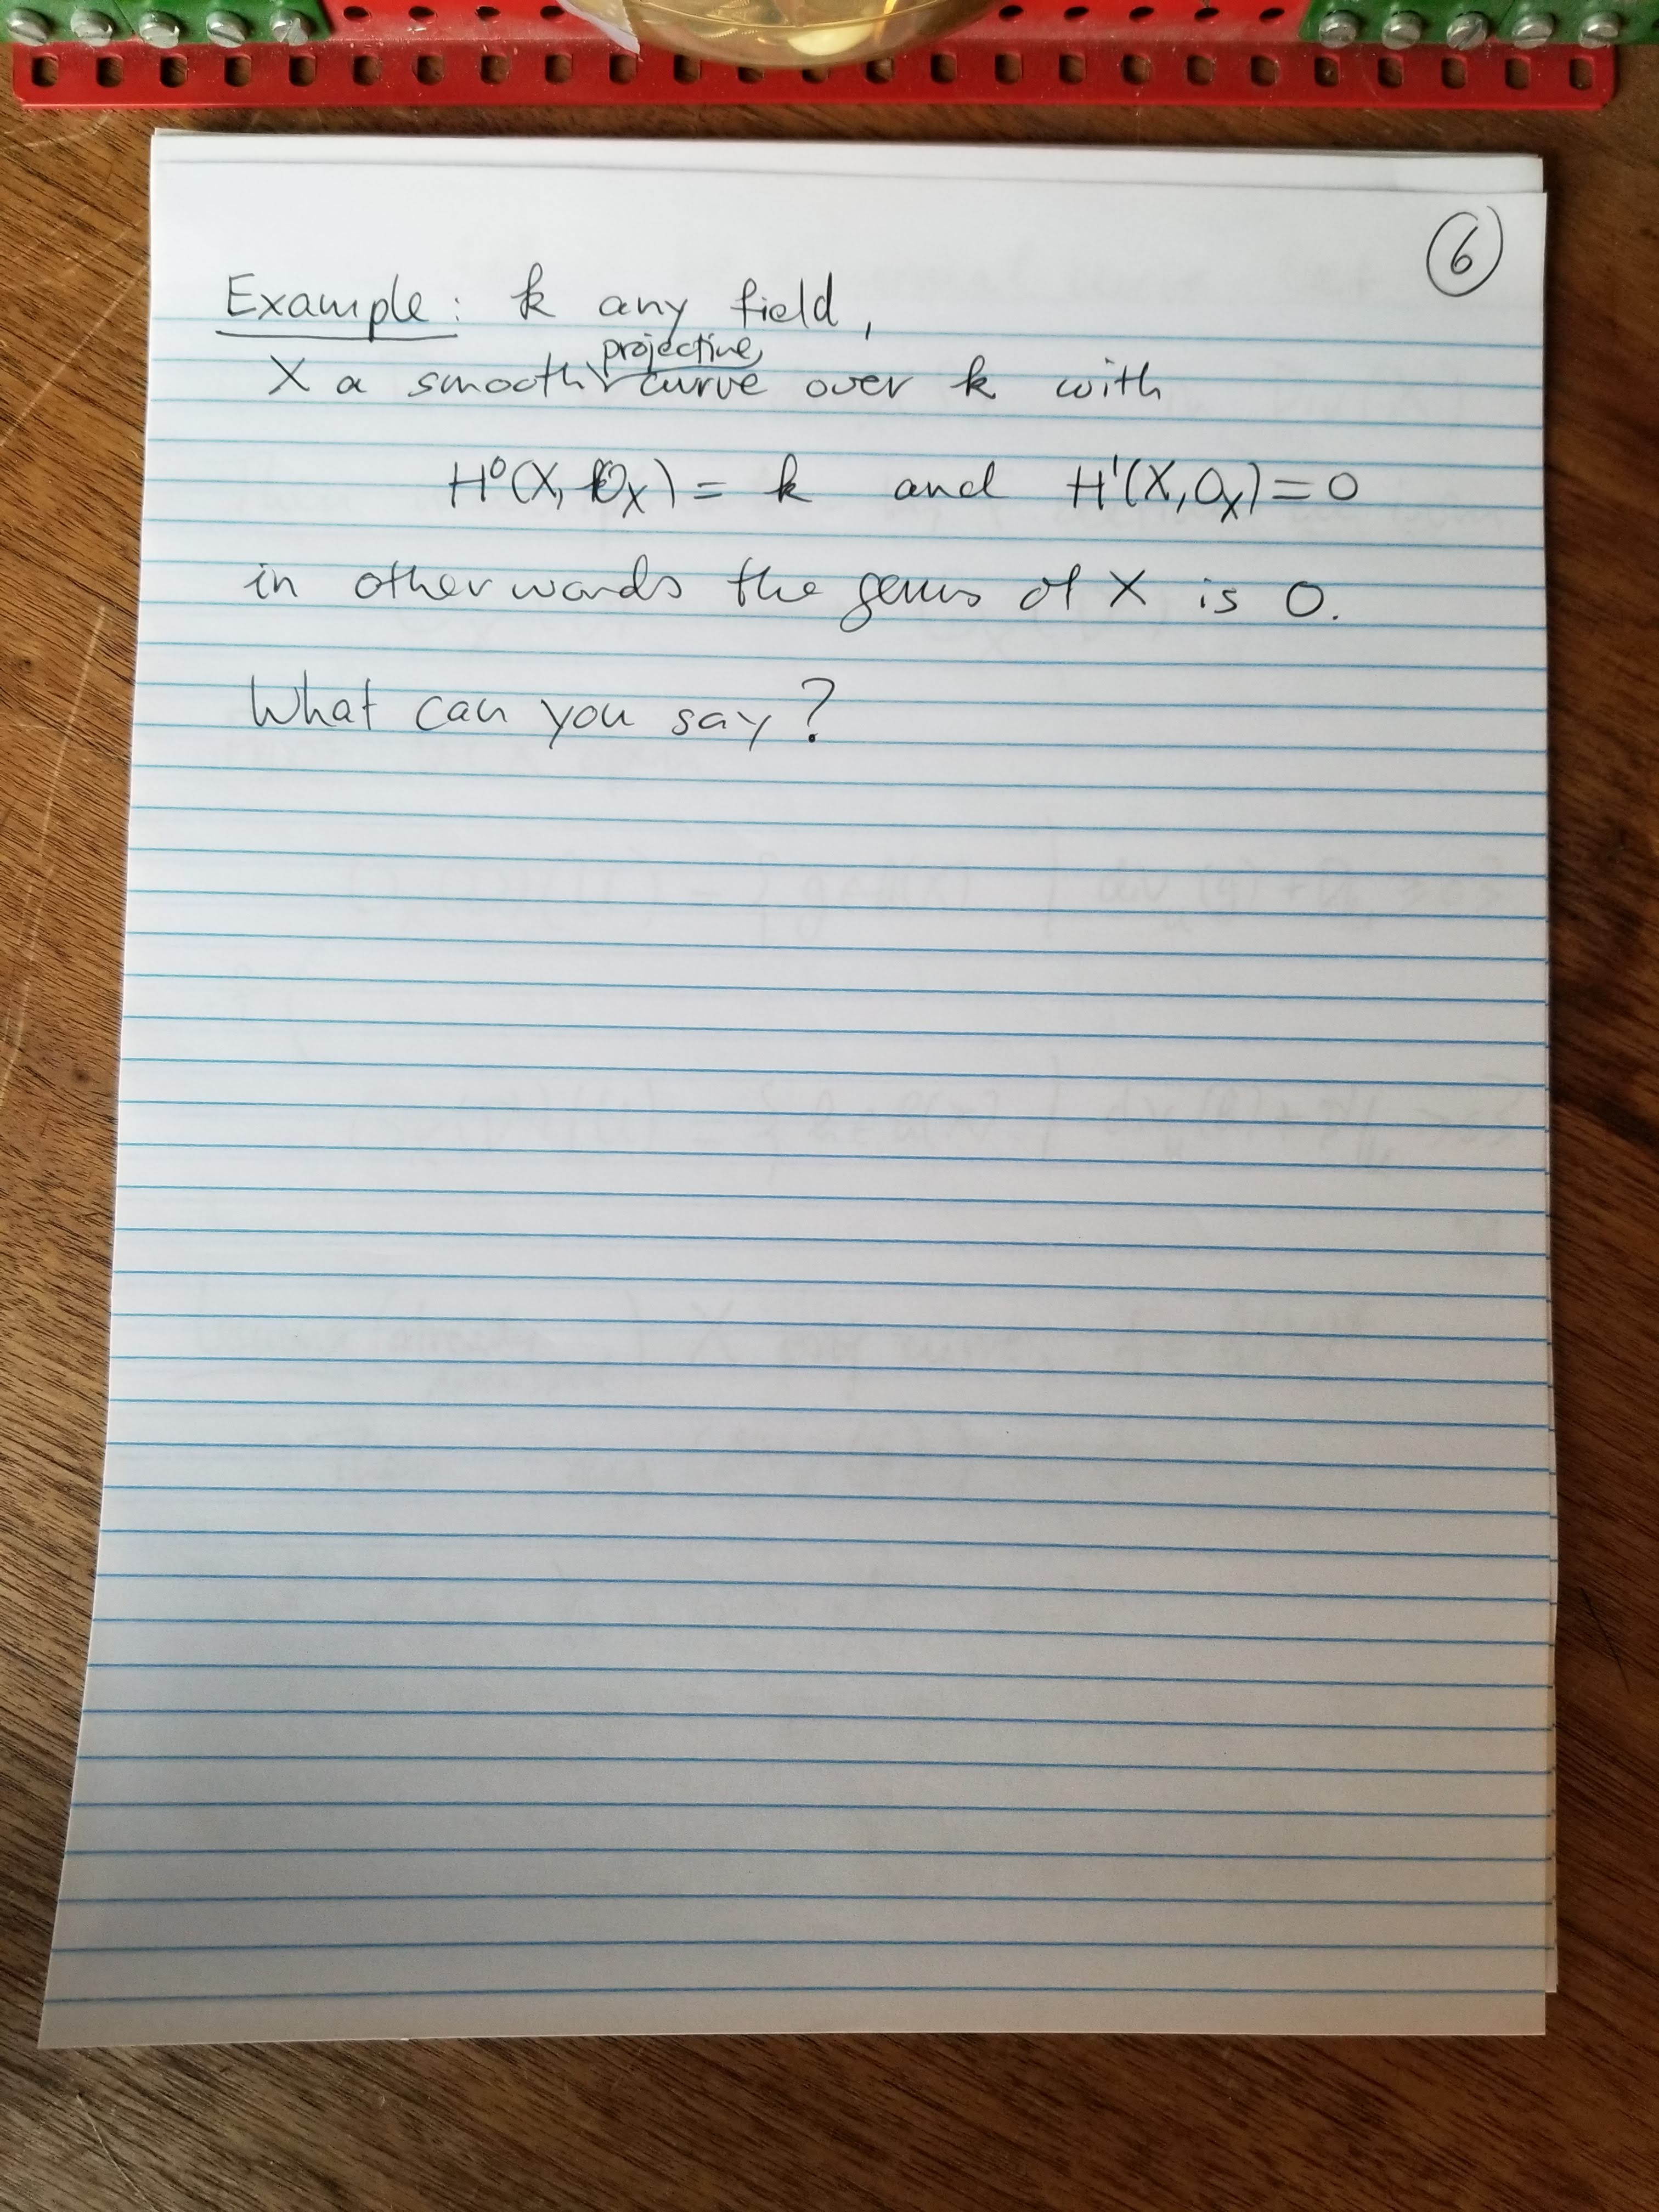 6
Example: k any field,
X a smooth projective curve over k with
H⁰(X, O_X) = k and H¹(X, O_X) = 0
in other words the genus of X is 0.
What can you say?